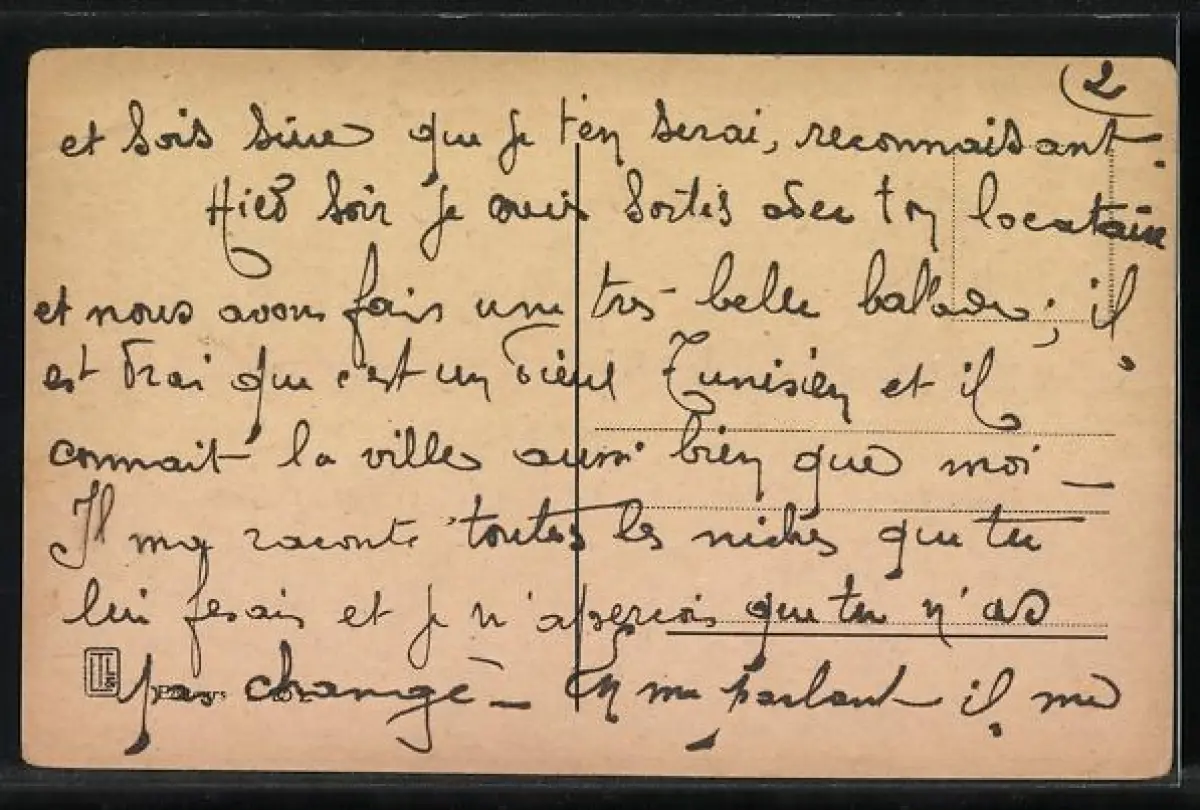 2
et sois sûre que je t'en serai, reconnaissant.
Hier soir je suis sortis avec ton locataire
et nous avons fais une très belle ballade; il
est vrai que c'est un vieux Tunisien et il
connait la ville aussi bien que moi _
Il m'a raconté toutes les niches que tu
lui fesais et je m'aperçois que tu n'as
pas changé _ En me parlant il me